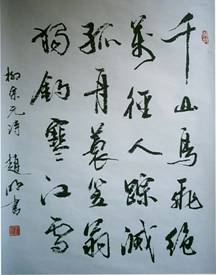 千山鳥飛絕
萬徑人踪滅
孤舟蓑笠翁
獨釣寒江雪
柳宗元诗 趙 書